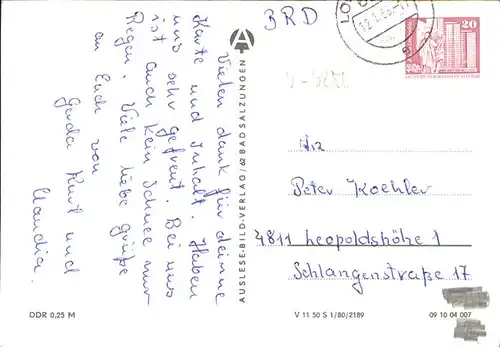 BRD
Vielen dank für deine
Karte und Inhalt. Haben
uns sehr gefreut. Bei uns
ist auch kein Schnee nur
Regen. Viele liebe grüße
an Euch von
Gerda Kurt und
Claudia.
AUSLESE-BILD-VERLAG/62 BAD SALZUNGEN
20
An
Peter Koehler
4811 Leopoldshöhe 1
Schlangenstraße 17
DDR 0,25 M
V 11 50 S 1/80/2189
09 10 04 007